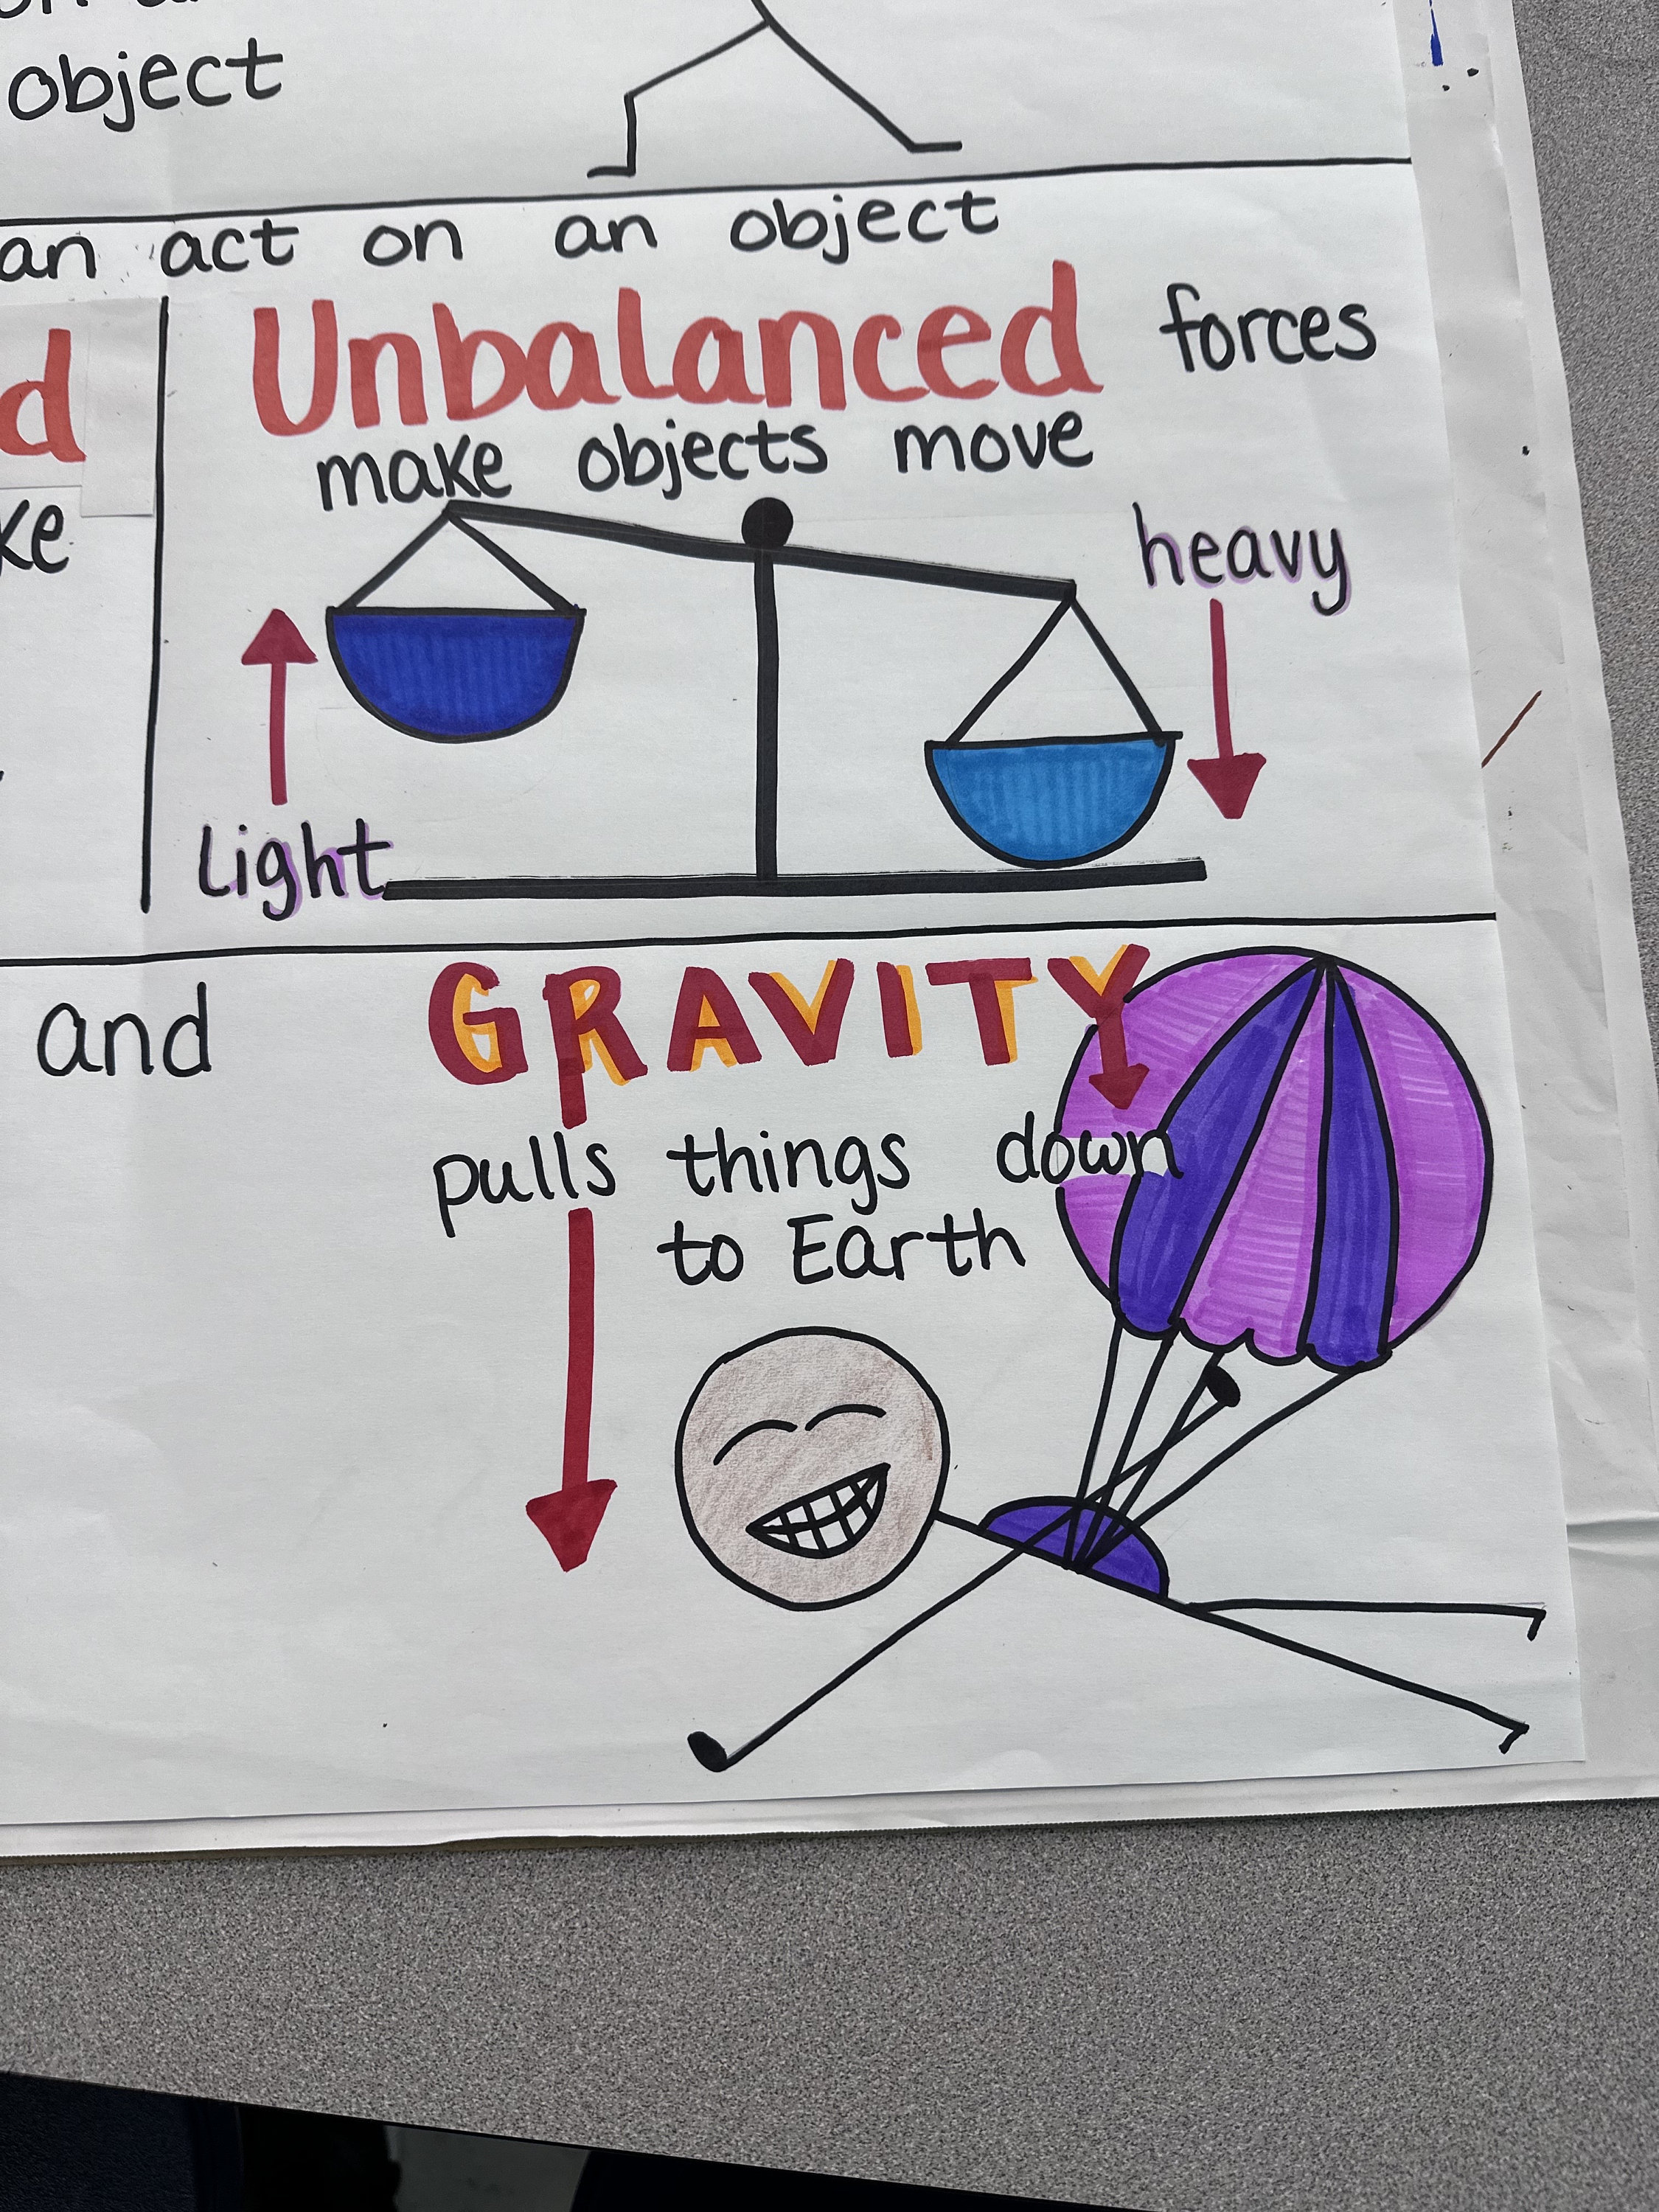 object
an act on an object
Unbalanced forces
make objects move
heavy
Light
and
GRAVITY
pulls things down
to Earth